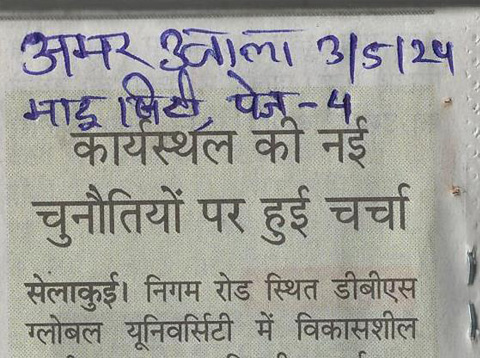 अमर उजाला 3/5/24
माइ सिटी, पेज - 4
कार्यस्थल की नई
चुनौतियों पर हुई चर्चा
सेलाकुई। निगम रोड स्थित डीबीएस
ग्लोबल यूनिवर्सिटी में विकासशील